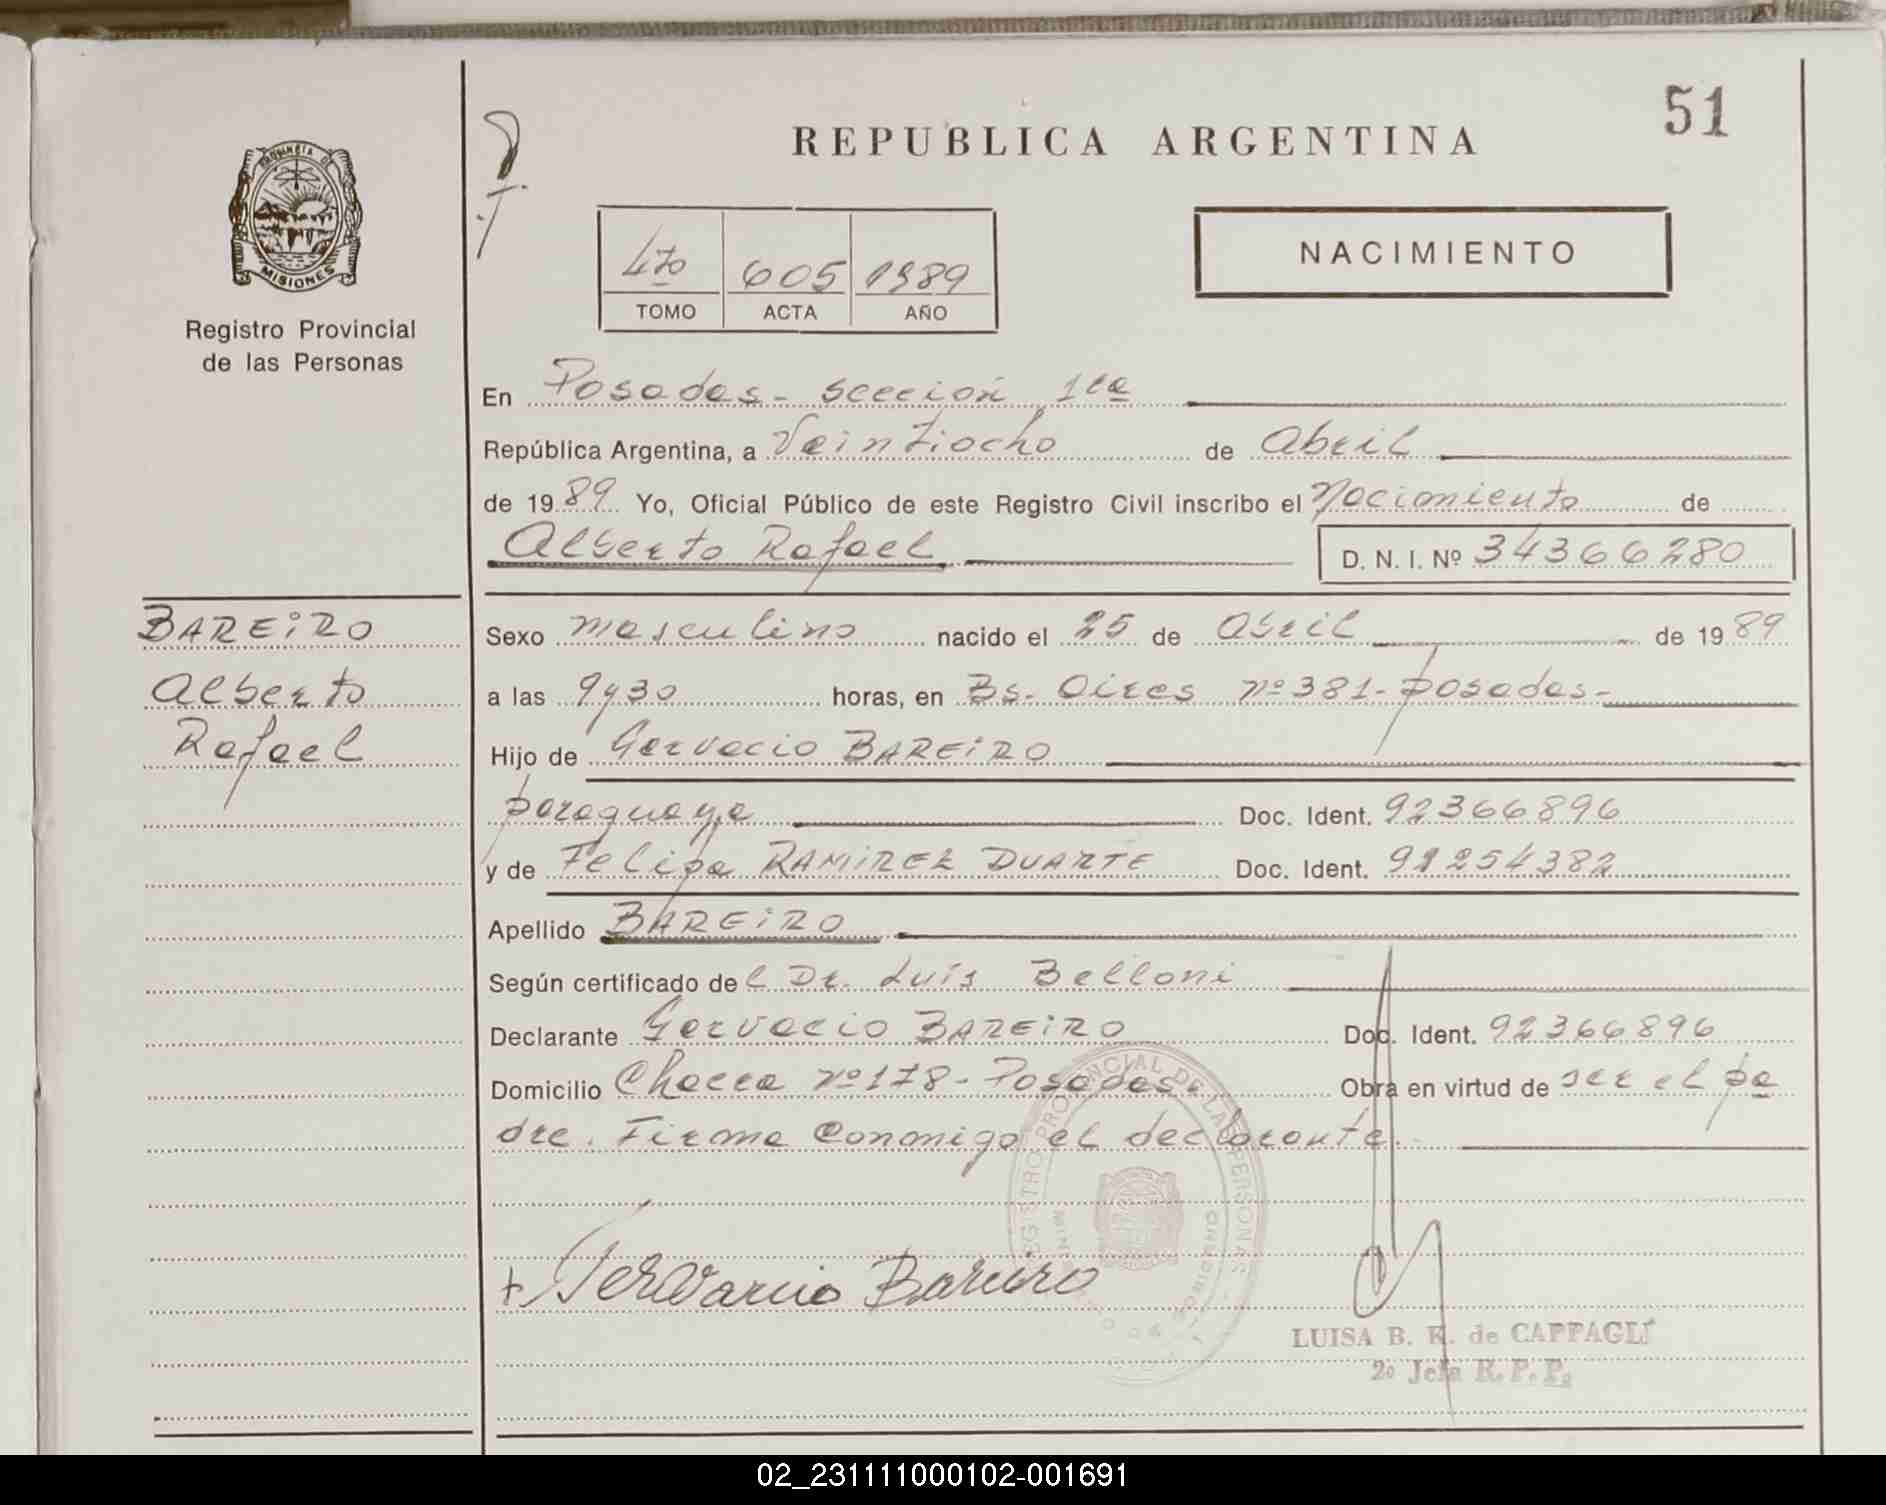 51
REPUBLICA ARGENTINA
PROVINCIA DE
MISIONES
Registro Provincial
de las Personas
4to 605 1989
TOMO ACTA AÑO
NACIMIENTO
En Posadas - sección 1ra
República Argentina, a Veintiocho de Abril
de 1989 Yo, Oficial Público de este Registro Civil inscribo el Nacimiento de
Alberto Rafael D. N. I. Nº 34366280
BAREIRO
Alberto
Rafael
Sexo masculino nacido el 25 de Abril de 1989
a las 9y30 horas, en Bs. Aires nº 381 - posadas -
Hijo de Gervacio BAREIRO
paraguaya Doc. Ident. 92366896
y de Felipa RAMIREZ DUARTE Doc. Ident. 92254382
Apellido BAREIRO
Según certificado del Dr. Luis Belloni
Declarante Gervacio BAREIRO Doc. Ident. 92366896
Domicilio Chacra nº 178 - Posadas. Obra en virtud de ser el pa
dre. Firma conmigo el declarante.
REGISTRO PROVINCIAL DE LAS PERSONAS
MINISTERIO DE GOBIERNO
+ Gervacio Bareiro
LUISA B. K. de CAPPAGLI
2º Jefa R. P. P.
02_231111000102-001691